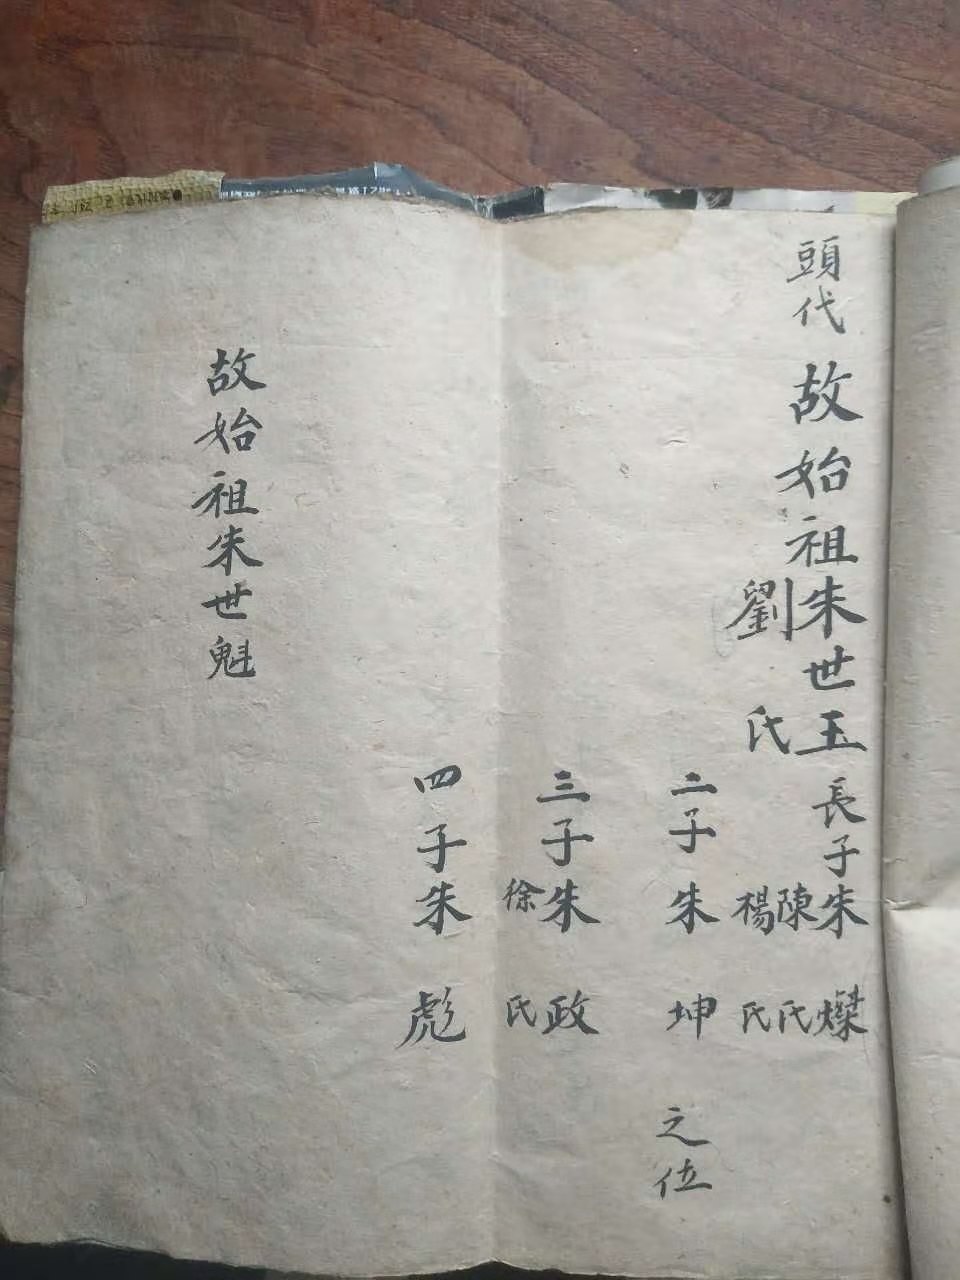 頭代
故始祖朱世玉
劉氏
長子朱燦
陳氏
楊氏
二子朱坤
之位
三子朱政
徐氏
四子朱彪
故始祖朱世魁